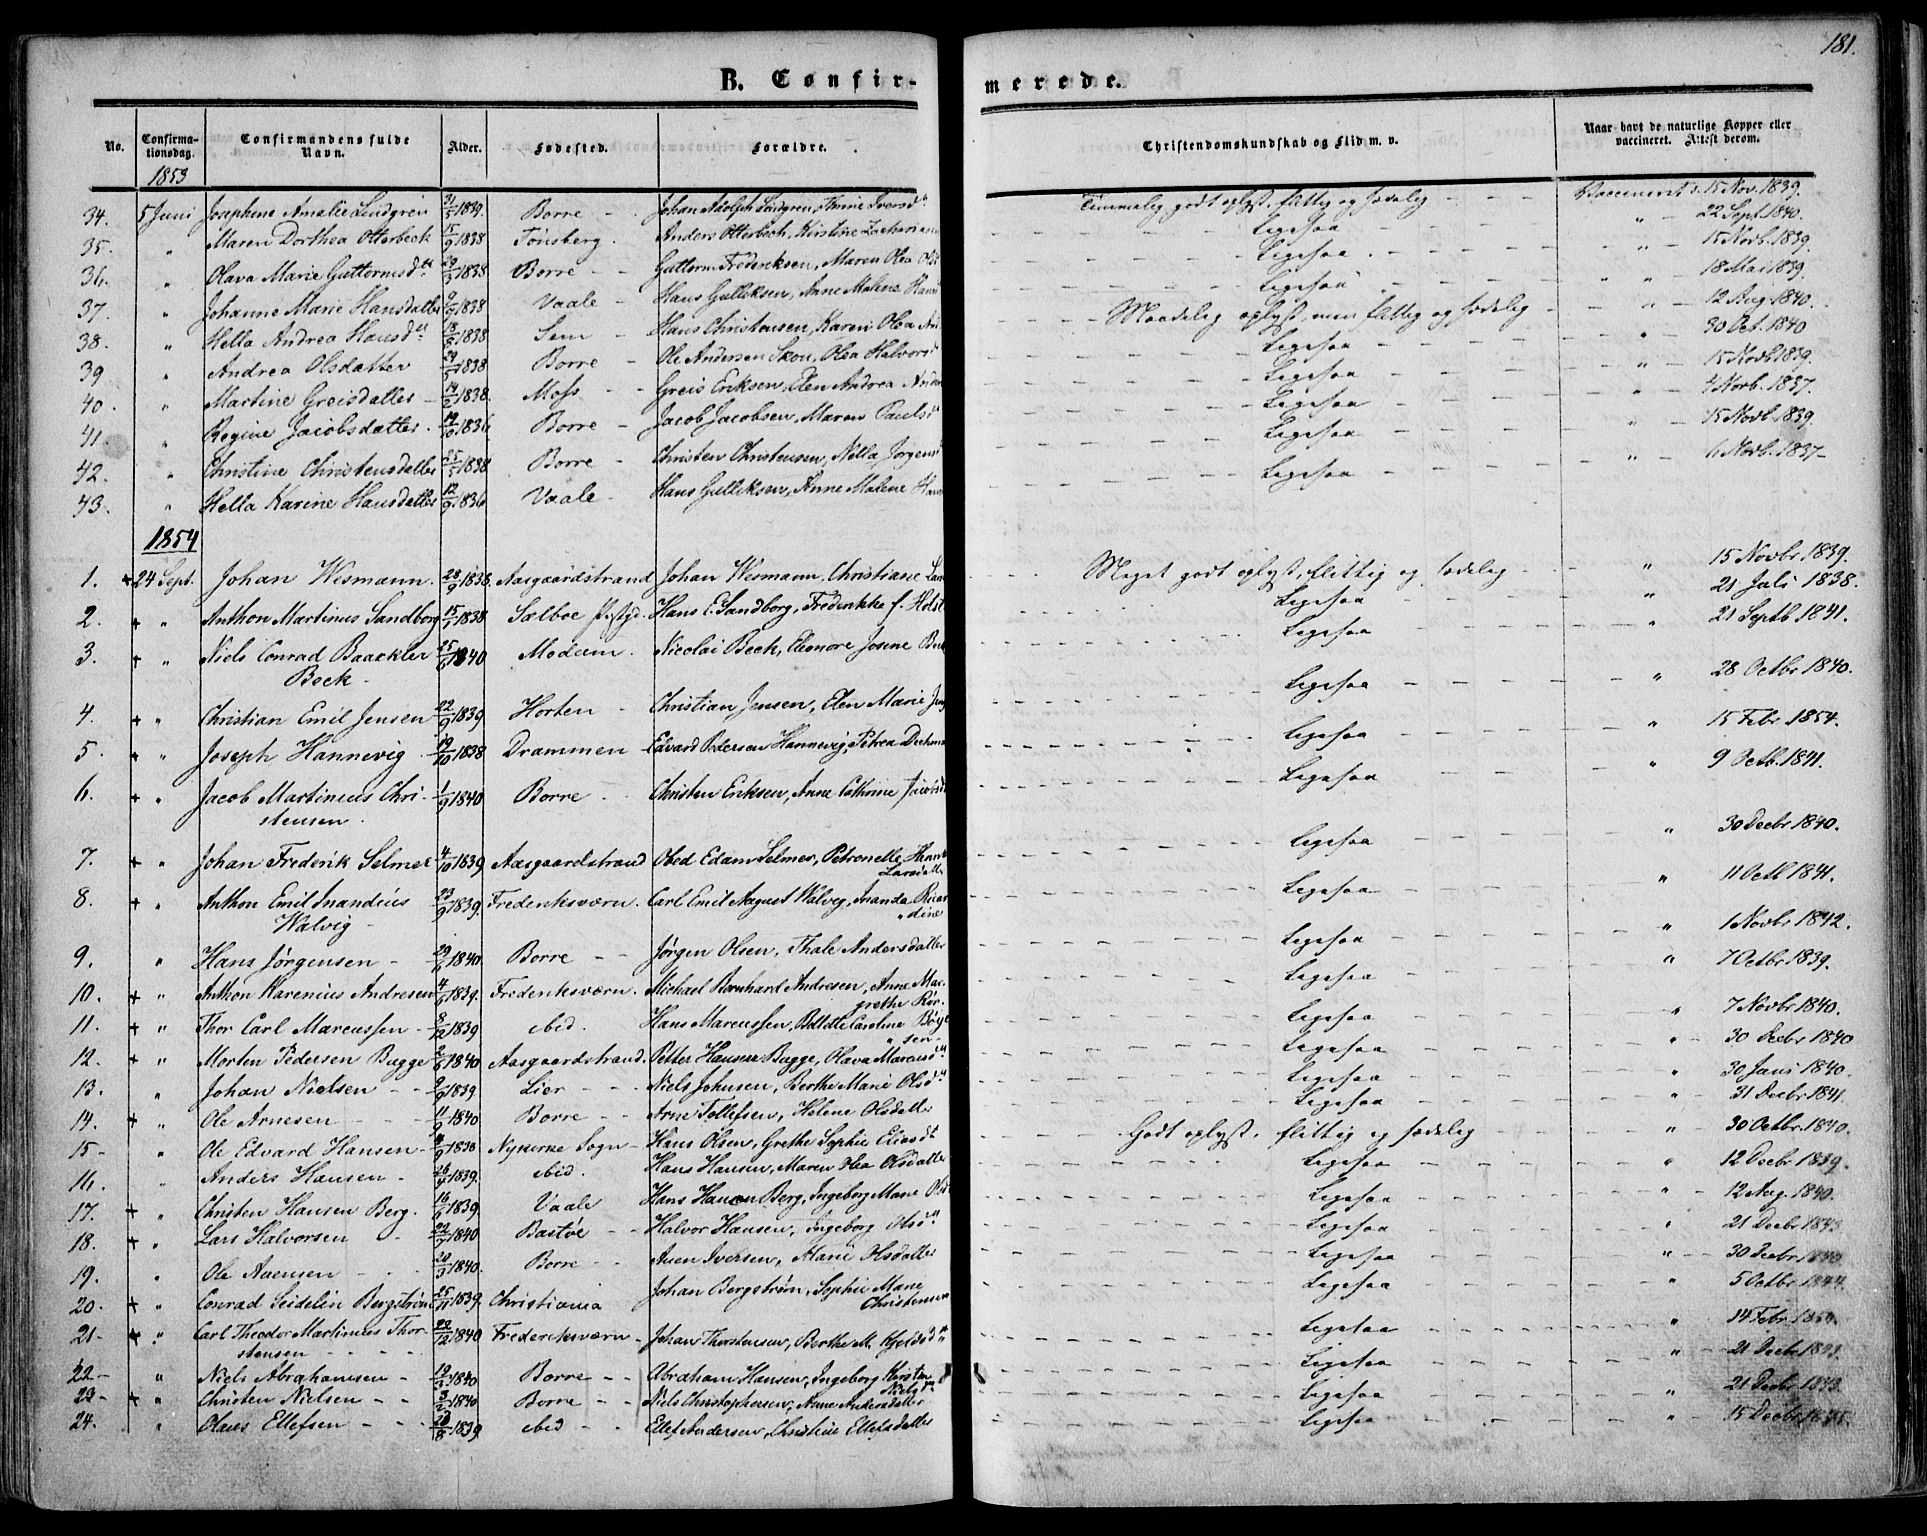 181.
B. Confirmerede.
No. Confirmationsdag. Confirmandens fulde Navn. Alder. Fødested. Forældre. Christendomskundskab og Flid m. v. Naar havt de naturlige Kopper eller vaccineret. Attest derom.
1853
34. 5 Juni Josephine Amalie Lindgren 1839. Borre Johan Adolph Lindgren, Anne Iversd. Temmelig godt oplyst, flittig og sædelig 15 Nov. 1839.
35. " Maren Dorthea Otterbeck 15/9 1838 Tønsberg. Anders Otterbech, Kirstine Ligesaa " 22 Sept 1840.
36. " Olava Marie Guttormsd. 1838 Borre Guttorm Frederiksen, Maren Olea Ligesaa " 15 Novb. 1839.
37. " Johanne Marie Hansdatter 1838 Vaale Hans Gulliksen, Anne Malene Ligesaa " 18 Mai 1839.
38. " Hella Andrea Hansd. 1838 Sem Hans Christensen, Karen Olea Maadelig oplyst, men flittig og sædelig " 12 Aug 1840.
39 " Andrea Olsdatter 1838 Borre Ole Andersen Skou, Olea Halvorsd Ligesaa " 30 Oct. 1840
40. " Martine Greisdatter 1838. Moss Greis Eriksen, Elen Andrea Ligesaa " 15 Novb 1839.
41. " Regine Jacobsdatter 1836 Borre Jacob Jacobsen, Maren Paulsd Ligesaa " Novb. 1837.
42. " Christine Christensdatter 25/5 1838 Borre Christen Christensen, Nella Jørgensd Ligesaa " 15 Novb. 1839.
43. " Hella Karine Hansdatter 12/9 1836 Vaale Hans Gulliksen, Anne Malene Ligesaa " 6 Novb. 1837
1854
1. + 24 Sept. Johan Wesmann 23/9 1838. Aasgaardstrand Johan Wesmann, Christiane Meget godt oplyst, flittig og sædelig " 15 Novbr 1839.
2. + " Anthon Martinus Sandborg 1838 Sælboe Hans E. Sandborg, Frederikke f. Holst Ligesaa " 21 Juli 1838.
3. + " Niels Conrad Baackler Beck 1840 Modum. Nicolai Beck, Eleonore Josine Ligesaa " 21 Septb 1841.
4. + " Christian Emil Jensen 22/9 1839 Horten Christian Jensen, Elen Marie Ligesaa " 28 Octbr 1840.
5. + " Joseph Hannevig 19/10 1838 Drammen Edvard Pedersen Hannevig, Petrea Ligesaa " 15 Febr 1854.
6. + " Jacob Martinius Christensen. 1/9 1840 Borre Christen Eriksen, Anne Cathrine Jacobsd Ligesaa " 9 Octb. 1841.
7. + " Johan Frederik Selmer 4/10 1839 Aasgaardstrand Obed Edam Selmer, Petronelle Larsdatter Ligesaa " 30 Decbr 1840.
8. + " Anthon Emil Inandius Walvig 23/9 1839. Frederiksværn. Carl Emil August Walvig, Inanda Ligesaa " 11 Octb 1841.
9. " Hans Jørgensen 1840. Borre Jørgen Olsen, Thale Andersdatter Ligesaa " 1 Novbr 1842.
10. + " Anthon Karenius Andresen 1839. Frederiksværn. Michael Bernhard Andresen, Anne Margrethe Ligesaa " 7 Octbr 1839.
11. + " Thor Carl Marcussen 8/12 1839 ibid. Hans Marcussen, Caroline Ligesaa " 7 Novbr 1840.
12. + " Morten Pedersen Bugge 1840 Aasgaardstrand. Petter Hansen Bugge, Olava Marcusd. Ligesaa " 30 Decbr 1840
13. " Johan Nielsen 1839. Lier Niels Johnsen, Berthe Marie Olsd. Ligesaa " 30 Juni 1840.
14. + " Ole Arnesen 1840 Borre Arne Tollefsen, Helene Olsdatter Ligesaa " 31 Decbr 1841.
15 " Ole Edvard Hansen Nykirke Sogn Hans Olsen, Grethe Sophie Eliasd. Godt oplyst, flittig og sædelig " 30 Octbr 1840.
16. " Anders Hansen 1839. ibid. Hans Hansen, Maren Olea Olsdatter Ligesaa " 12 Decbr 1839.
17. + " Christen Hansen Berg. 1839. Vaale Hans Hansen Berg, Ingeborg Marie Olsd Ligesaa " 12 Aug. 1840.
18. + " Lars Halvorsen 1840 Bastøe Halvor Hansen, Ingeborg Olsd. Ligesaa " 21 Decbr
19. " Ole Auensen 1840. Borre Auen Iversen, Marie Olsdatter Ligesaa " 30 Decbr
20. + " Conrad Seidelin Bergstrøm 25/11 1839. Christiania Johan Bergstrøm, Sophie Marie Christensen Ligesaa " 5 Octbr 1844.
21 + " Carl Theodor Martinius Thorstensen 1840 Frederiksværn Johan Thorstensen, Berthe M. Ligesaa " 14 Febr 1854.
22 " Niels Abrahamsen 1840 Borre Abraham Hansen, Ingeborg Kirstine Nielsd. Ligesaa " 21 Decbr
23 + " Christen Nielsen 1840 Borre Niels Christophersen, Anne Andersdatter Ligesaa " 21 Decbr 1843.
24. " Olaus Ellefsen 1839. ibid Ellef Andersen, Christine Ellefsdatter Ligesaa " 15 Decbr